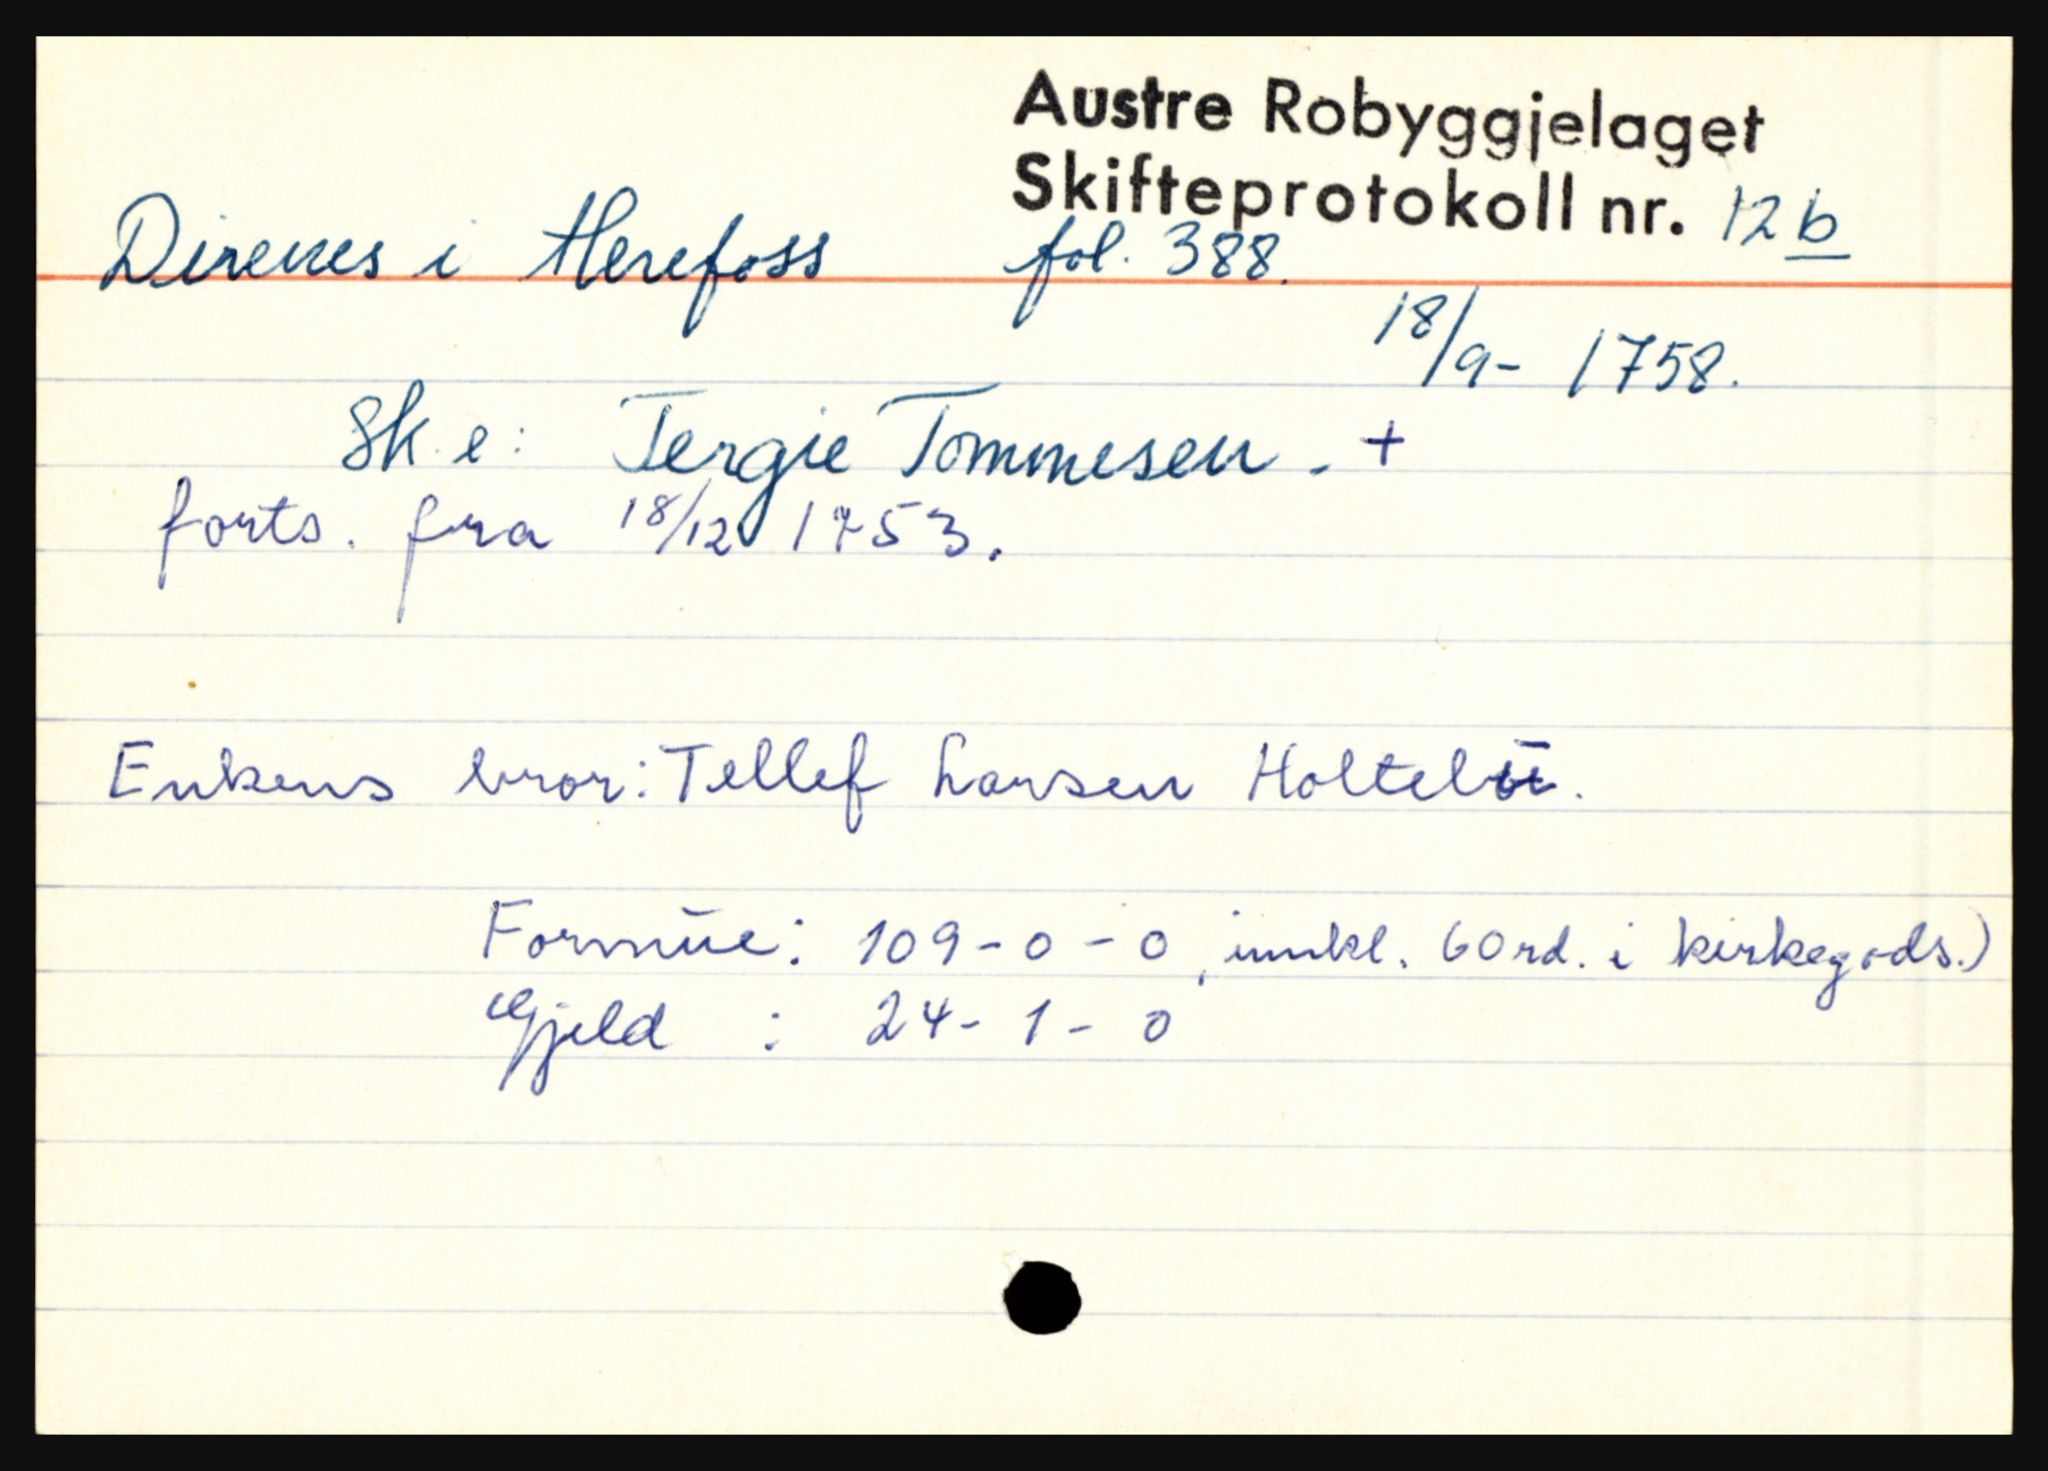 Austre Robyggjelaget
Skifteprotokoll nr. 12b
Direnes i Herefoss fol. 388.
18/9- 1758.
Sk. e: Tergie Tommesen. +
forts. fra 18/12 1753.
Enkens bror: Tellef Larsen
Formūe: 109-0-0, innkl. 60 rd. i kirkegods.)
Gjeld : 24-1-0